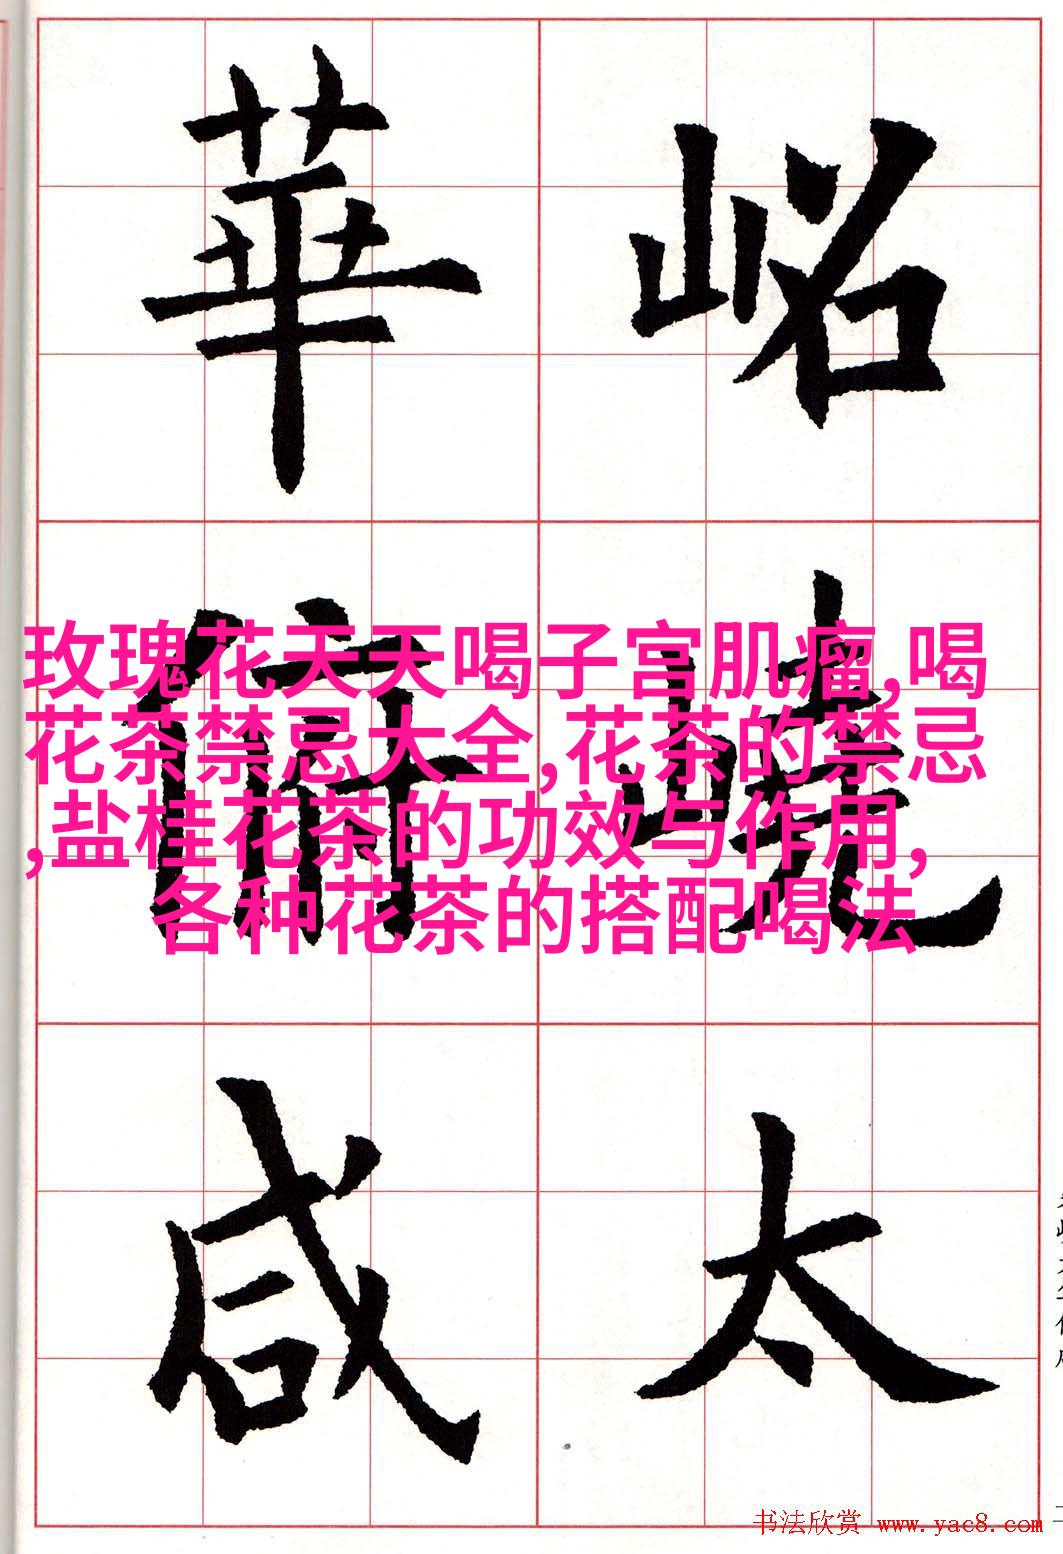 岹
太
華
俯
咸
玫瑰花天天喝子宫肌瘤,喝
花茶禁忌大全,花茶的禁忌
,盐桂花茶的功效与作用,
各种花茶的搭配喝法
书法欣赏 www.yac8.com